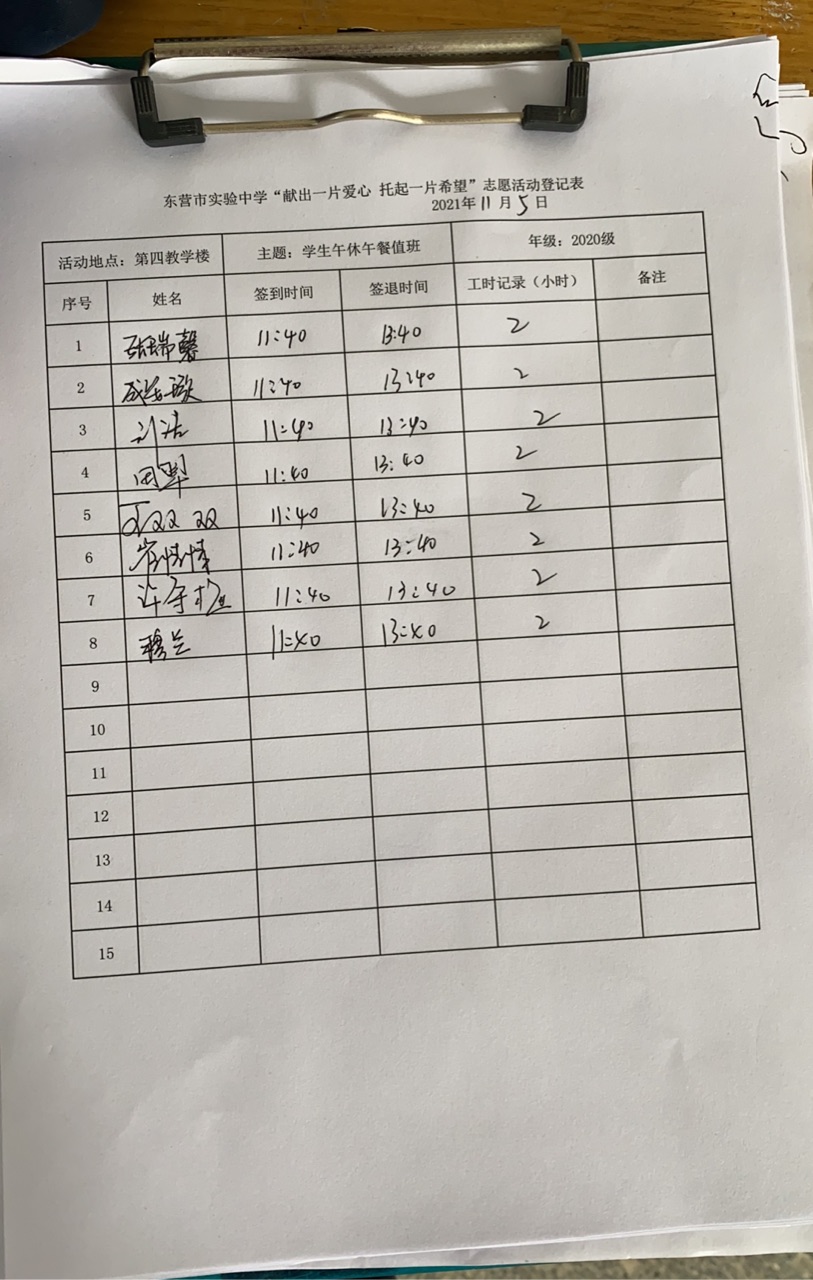 东营市实验中学“献出一片爱心 托起一片希望”志愿活动登记表
2021年11月5日
活动地点：第四教学楼 主题：学生午休午餐值班 年级：2020级
序号 姓名 签到时间 签退时间 工时记录（小时） 备注
1 张瑞馨 11:40 13:40 2
2 11:40 13:40 2
3 11:40 13:40 2
4 田 11:40 13:40 2
5 双双 11:40 13:40 2
6 崔倩倩 11:40 13:40 2
7 许 11:40 13:40 2
8 穆兰 11:40 13:40 2
9
10
11
12
13
14
15